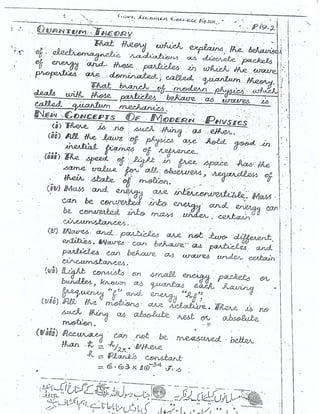 P IV-2
QUANTUM THEORY
That theory which explains the behaviour
of electromagnetic radiations as discrete packets
of energy and those particles in which the wave
properties are dominated, called quantum theory.
That branch of modern physics which
deals with those particles behave as waves is
called quantum mechanics.
NEW CONCEPTS OF MODERN PHYSICS
(i) There is no such thing as ether.
(ii) All the laws of physics are hold good in
inertial frames of refrence.
(iii) The speed of light in free space has the
same value for all observers, regardless of
their state of motion.
(iv) Mass and energy are interconvertible. Mass
can be converted into energy and energy can
be converted into mass under certain
circumstances.
(v) Waves and particles are not two different
entities. Waves can behave as particles and
particles can behave as waves under certain
circumstances.
(vi) Light consists on small energy packets or
bundles, known as quantas each having
frequency "f" and energy "hf".
(vii) All the motions are relative. There is no
such thing as absolute rest or absolute
motion.
(viii) Accuracy can not be measured better
than ℏ = h/2π. Where
h = Plank's constant
= 6.63 x 10⁻³⁴ J.s